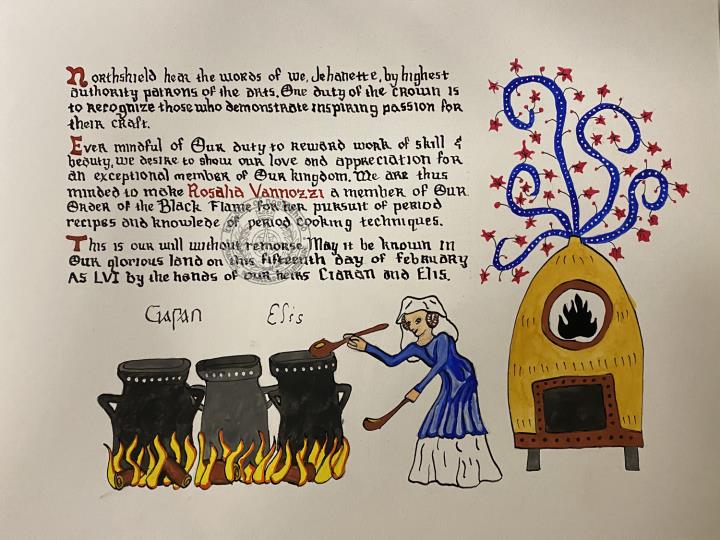 Northshield hear the words of we, Jehanette, by highest
authority patrons of the arts. One duty of the crown is
to recognize those who demonstrate inspiring passion for
their craft.
Ever mindful of Our duty to reward work of skill &
beauty, we desire to show our love and appreciation for
an exceptional member of Our kingdom. We are thus
minded to make Rosalia Vannozzi a member of Our
Order of the Black Flame for her pursuit of period
recipes and knowlede of period cooking techniques.
This is our will without remorse. May it be known in
Our glorious land on this fifteenth day of february
AS LVI by the hands of our heirs Ciaran and Elis.
Elis